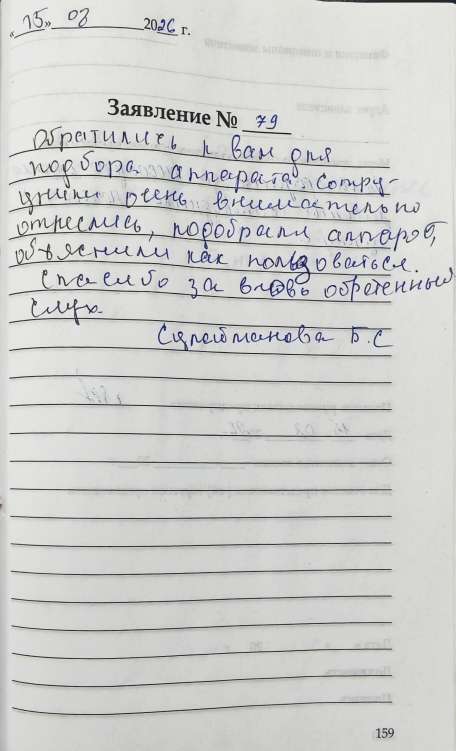 «15» 03 2026 г.
Заявление № 79
Обратились к вам для
подбора аппарата. Сотру-
дники очень внимательно
отнеслись, подобрали аппарат,
объяснили как пользоваться.
Спасибо за вновь обретенный
слух.
Сулайманова Б.С
159